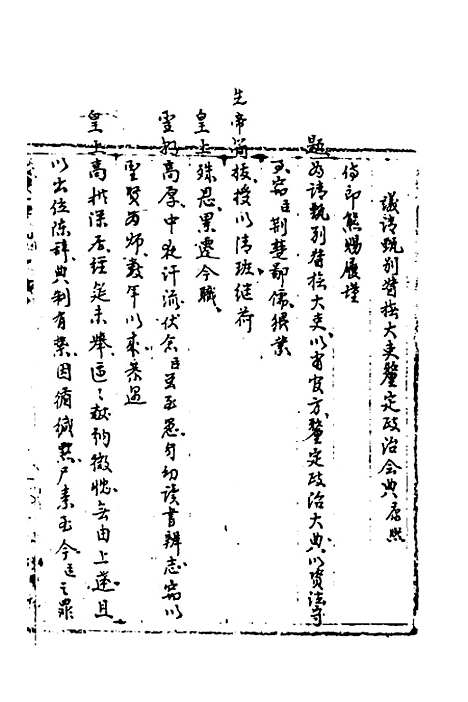 議請甄別督撫大吏釐定政治會典
侍郎熊賜履謹
題為請甄別督撫大吏以肅官方釐定政治大典以資法守
事竊臣荆楚鄙儒猥蒙
先帝簡拔授以清班継荷
皇上殊恩累遷今職
高厚中夜汗流伏念臣至愚自幼讀書辨志竊以
聖賢為師數年以來恭遇
皇上高拱深居經筵未舉區〻献納微忱無由上達且
以出位陳辭典制有禁因循緘黙尸素至今臣之罪